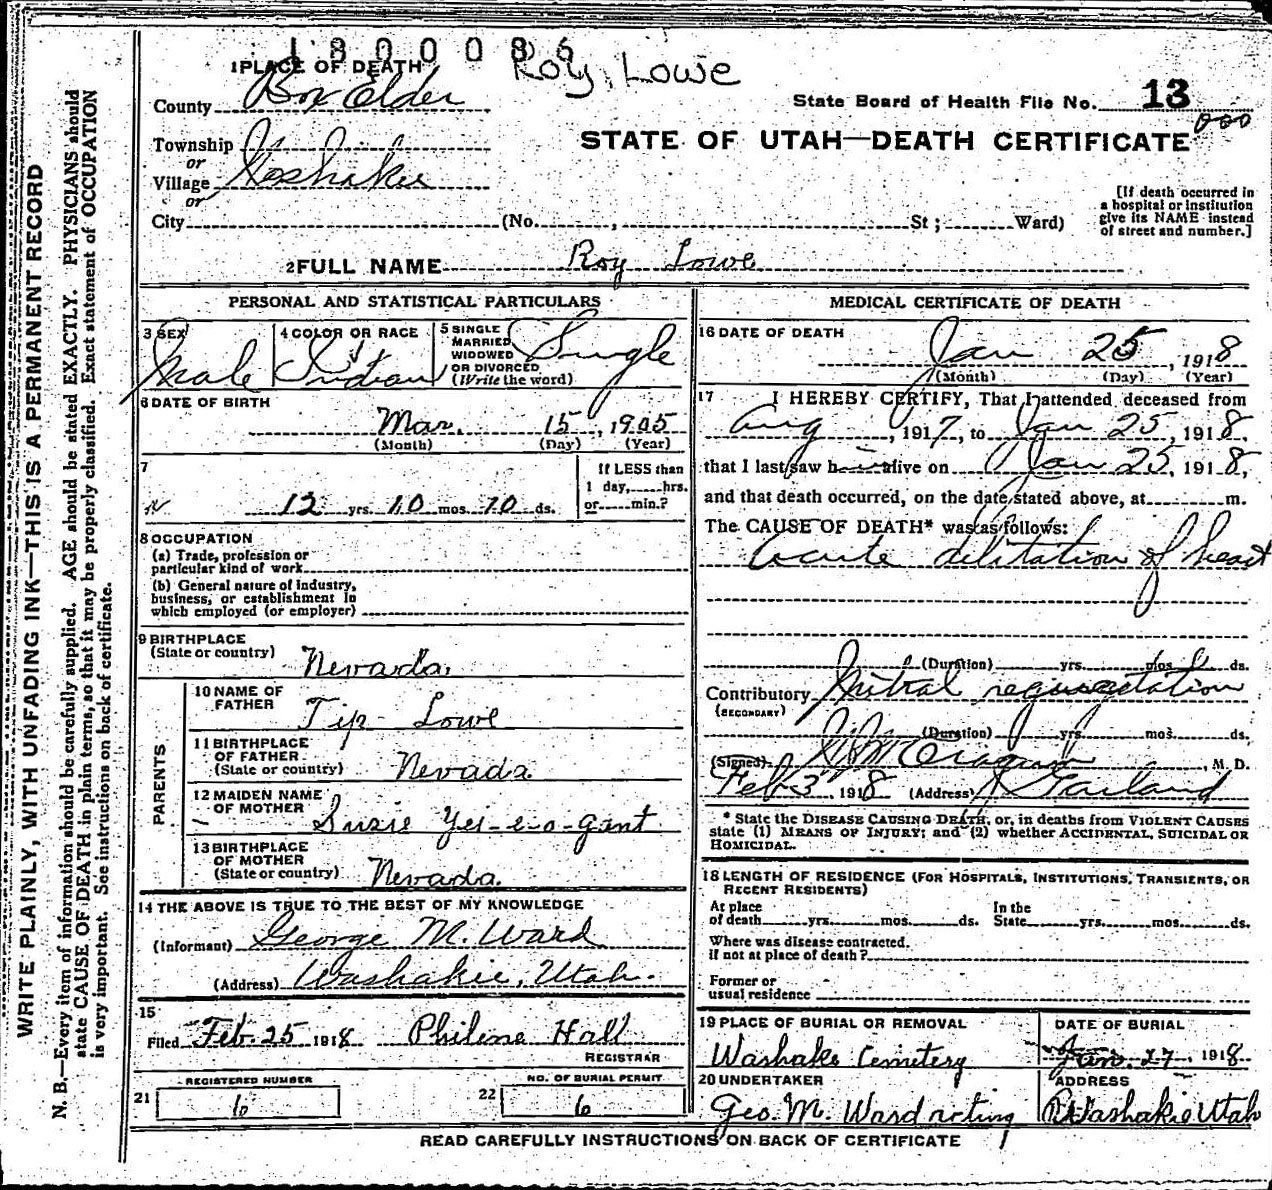 1800086
Roy Lowe
1 PLACE OF DEATH
County Box Elder
State Board of Health File No. 13
000
STATE OF UTAH—DEATH CERTIFICATE
Township
or
Village Washakie
or
City (No. , St ; Ward)
[If death occurred in
a hospital or institution
give its NAME instead
of street and number.]
2 FULL NAME Roy Lowe
PERSONAL AND STATISTICAL PARTICULARS
3 SEX Male
4 COLOR OR RACE Indian
5 SINGLE
MARRIED
WIDOWED
OR DIVORCED
(Write the word) Single
6 DATE OF BIRTH
Mar. 15, 1905
(Month) (Day) (Year)
7
12 yrs. 10 mos. 10 ds.
If LESS than
1 day, hrs.
or min.?
8 OCCUPATION
(a) Trade, profession or
particular kind of work
(b) General nature of industry,
business, or establishment in
which employed (or employer)
9 BIRTHPLACE
(State or country) Nevada.
PARENTS
10 NAME OF
FATHER Tip Lowe
11 BIRTHPLACE
OF FATHER
(State or country) Nevada
12 MAIDEN NAME
OF MOTHER Suzie Yei-e-o-gant
13 BIRTHPLACE
OF MOTHER
(State or country) Nevada.
14 THE ABOVE IS TRUE TO THE BEST OF MY KNOWLEDGE
(Informant) George M. Ward
(Address) Washakie, Utah.
15
Filed Feb. 25 1918 Philena Hall
REGISTRAR
21 REGISTERED NUMBER
6
22 NO. OF BURIAL PERMIT
6
MEDICAL CERTIFICATE OF DEATH
16 DATE OF DEATH
Jan 25, 1918
(Month) (Day) (Year)
17 I HEREBY CERTIFY, That I attended deceased from
Aug, 1917, to Jan 25, 1918,
that I last saw him alive on Jan 25, 1918,
and that death occurred, on the date stated above, at m.
The CAUSE OF DEATH* was as follows:
Acute dilitation of heart
(Duration) yrs. mos. ds.
Contributory Mitral regurgetation
(SECONDARY)
(Duration) yrs. mos. ds.
(Signed) M. D.
Feb 3 1918 (Address) Garland
* State the DISEASE CAUSING DEATH, or, in deaths from VIOLENT CAUSES
state (1) MEANS OF INJURY; and (2) whether ACCIDENTAL, SUICIDAL OR
HOMICIDAL.
18 LENGTH OF RESIDENCE (FOR HOSPITALS, INSTITUTIONS, TRANSIENTS, OR
RECENT RESIDENTS)
At place
of death yrs. mos. ds.
In the
State yrs. mos. ds.
Where was disease contracted.
if not at place of death?
Former or
usual residence
19 PLACE OF BURIAL OR REMOVAL
Washakie Cemetery
DATE OF BURIAL
Jan. 27, 1918
20 UNDERTAKER
Geo. M. Ward acting
ADDRESS
Washakie Utah
READ CAREFULLY INSTRUCTIONS ON BACK OF CERTIFICATE
WRITE PLAINLY, WITH UNFADING INK—THIS IS A PERMANENT RECORD
N. B.—Every item of information should be carefully supplied. AGE should be stated EXACTLY. PHYSICIANS should
state CAUSE OF DEATH in plain terms, so that it may be properly classified. Exact statement of OCCUPATION
is very important. See instructions on back of certificate.